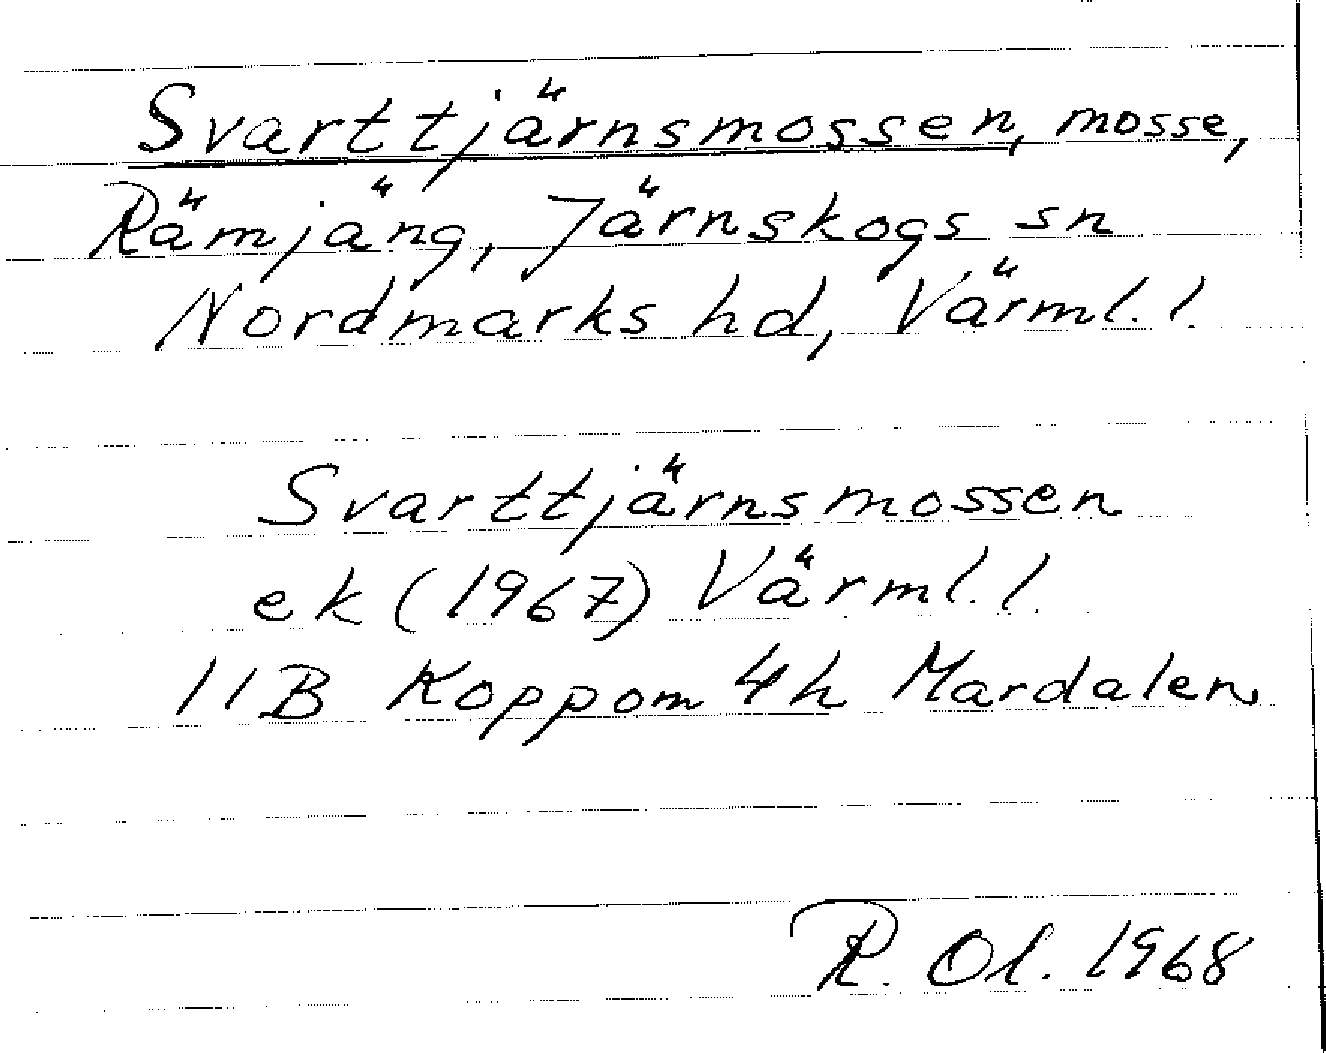 Svarttjärnsmossen, mosse,
Rämjäng, Järnskogs sn
Nordmarks hd, Värml. l.
Svarttjärnsmossen
ek (1967) Värml. l.
11B Koppom 4h Mardalen
R. Ol. 1968